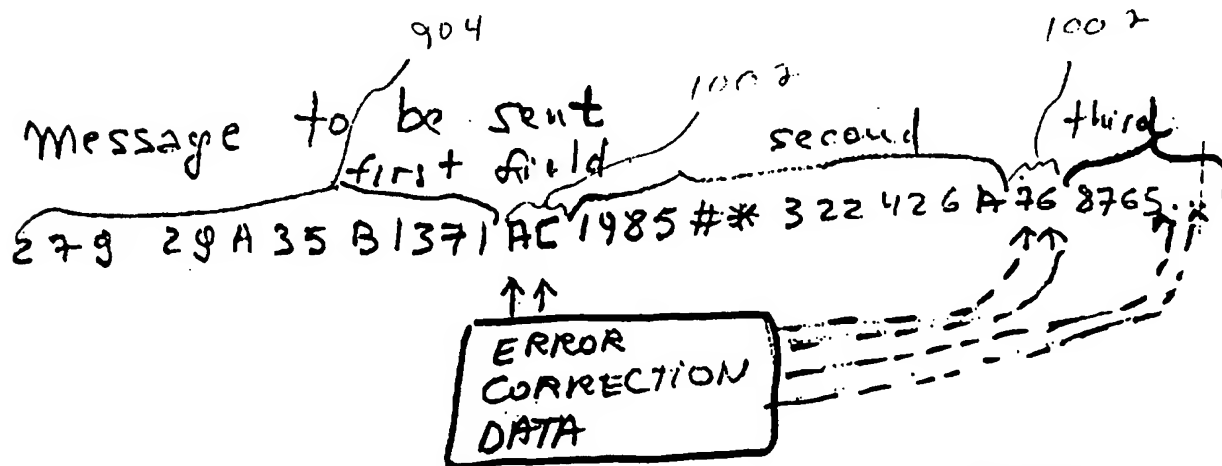 904
1002
1002
Message to be sent
first field
second
third
279 29A35B1371AC1985#*322426A768765
ERROR
CORRECTION
DATA